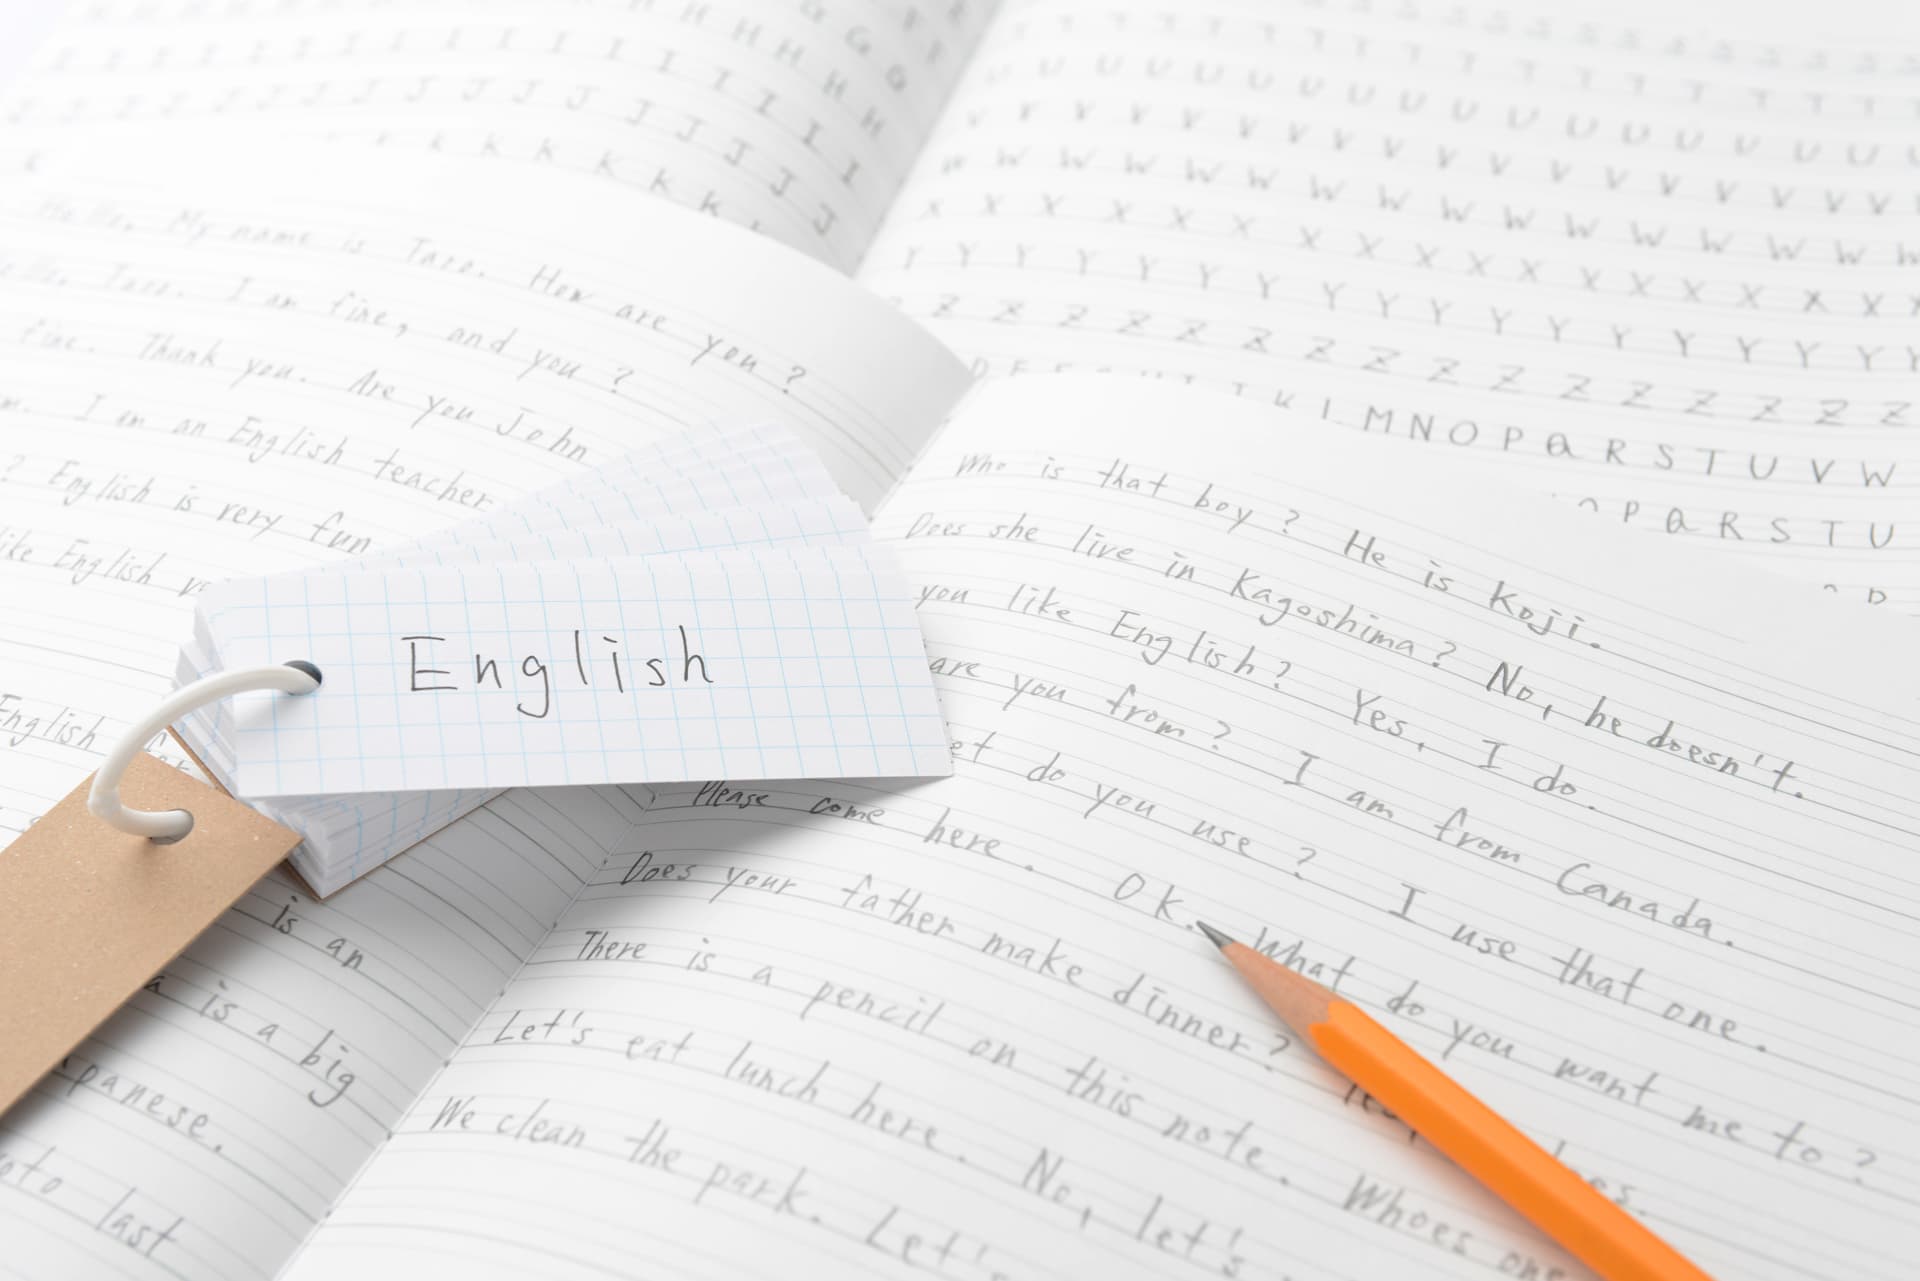 G G
H H H H H H H
I I I I I I I I I I I I I I I I
J J J J J J J J J J J J J J J
K K K K K K
T T T T T T T T T T T T T T
U U U U U U U U U U U U U U U U
V V V V V V V V V V V V V V V V V
W W W W W W W W W W W W W W W
X X X X X X X X X X X X X X X
Y Y Y Y Y Y Y Y Y Y Y Y Y Y Y Y
Z Z Z Z Z Z Z Z Z Z Z Z Z Z Z Z
M N O P Q R S T U V W
P Q R S T U
Hello, My name is Taro. How are you?
Taro. I am fine, and you?
fine. Thank you. Are you John
I am an English teacher
? English is very fun
like English
English
is an
a is a big
last
English
Who is that boy? He is Koji.
Does she live in Kagoshima? No, he doesn't.
you like English? Yes, I do.
are you from? I am from Canada.
do you use? I use that one.
Please come here. OK. What do you want me to?
Does your father make dinner?
There is a pencil on this note. Whoes one
Let's eat lunch here. No, let's
We clean the park. Let's